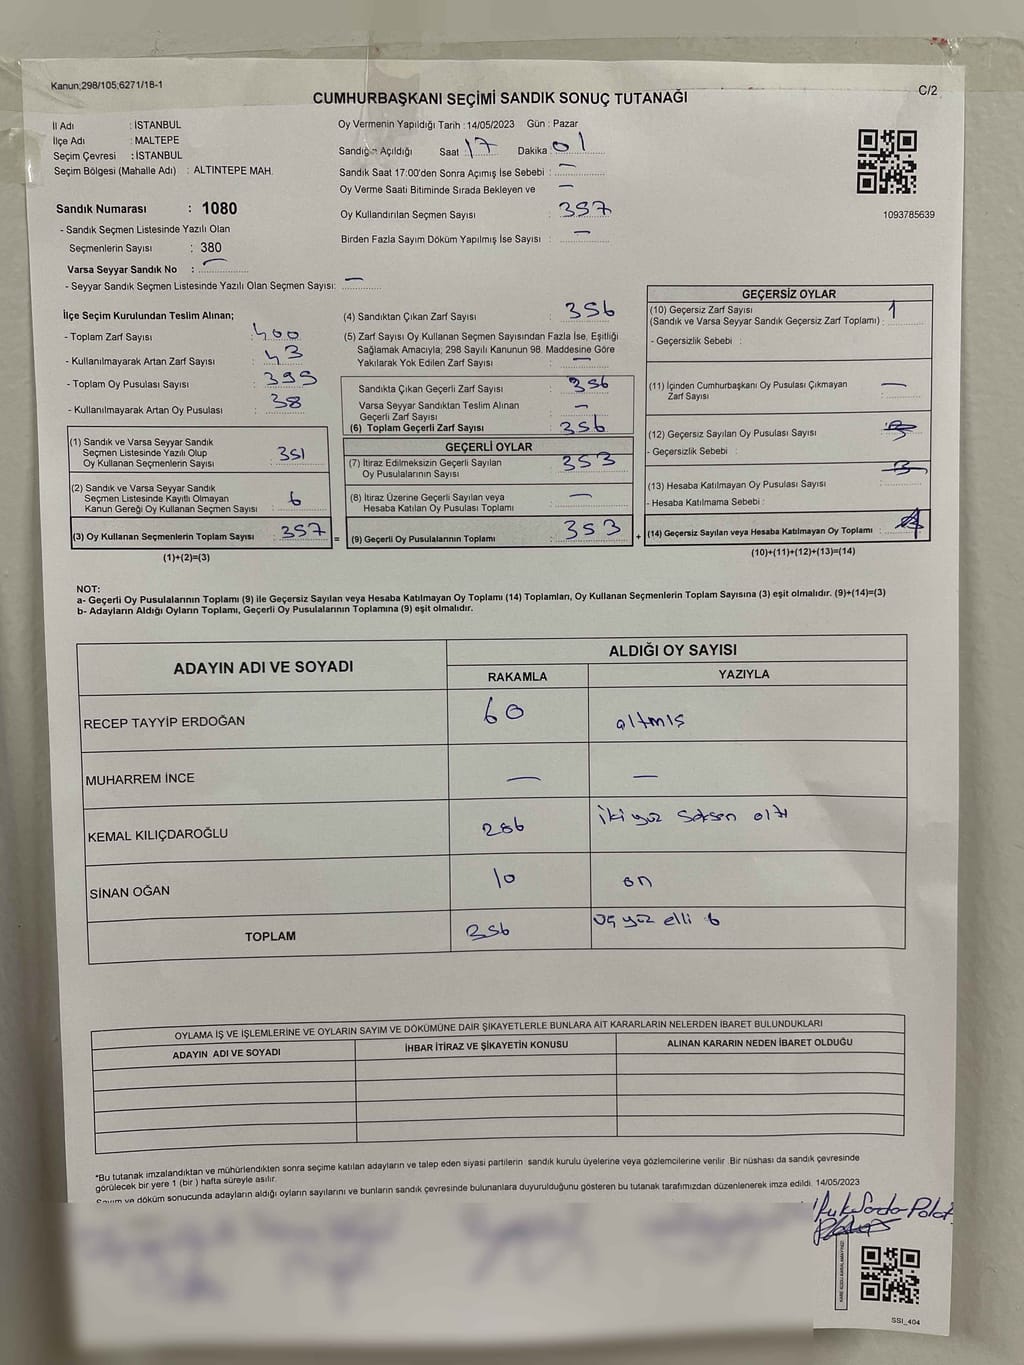 Kanun;298/105;6271/18-1
C/2
CUMHURBAŞKANI SEÇİMİ SANDIK SONUÇ TUTANAĞI
İl Adı : İSTANBUL
İlçe Adı : MALTEPE
Seçim Çevresi : İSTANBUL
Seçim Bölgesi (Mahalle Adı) : ALTINTEPE MAH.
Sandık Numarası : 1080
- Sandık Seçmen Listesinde Yazılı Olan
Seçmenlerin Sayısı : 380
Varsa Seyyar Sandık No : —
- Seyyar Sandık Seçmen Listesinde Yazılı Olan Seçmen Sayısı: —
Oy Vermenin Yapıldığı Tarih : 14/05/2023 Gün : Pazar
Sandığın Açıldığı Saat 17 Dakika 01
Sandık Saat 17:00'den Sonra Açımış İse Sebebi : —
Oy Verme Saati Bitiminde Sırada Bekleyen ve —
Oy Kullandırılan Seçmen Sayısı : 357
Birden Fazla Sayım Döküm Yapılmış İse Sayısı : —
1093785639
İlçe Seçim Kurulundan Teslim Alınan;
- Toplam Zarf Sayısı : 400
- Kullanılmayarak Artan Zarf Sayısı : 43
- Toplam Oy Pusulası Sayısı : 395
- Kullanılmayarak Artan Oy Pusulası : 38
(1) Sandık ve Varsa Seyyar Sandık
Seçmen Listesinde Yazılı Olup
Oy Kullanan Seçmenlerin Sayısı 351
(2) Sandık ve Varsa Seyyar Sandık
Seçmen Listesinde Kayıtlı Olmayan
Kanun Gereği Oy Kullanan Seçmen Sayısı : 6
(3) Oy Kullanan Seçmenlerin Toplam Sayısı : 357
(1)+(2)=(3)
(4) Sandıktan Çıkan Zarf Sayısı : 356
(5) Zarf Sayısı Oy Kullanan Seçmen Sayısından Fazla İse, Eşitliği
Sağlamak Amacıyla; 298 Sayılı Kanunun 98. Maddesine Göre
Yakılarak Yok Edilen Zarf Sayısı : —
Sandıkta Çıkan Geçerli Zarf Sayısı : 356
Varsa Seyyar Sandıktan Teslim Alınan
Geçerli Zarf Sayısı : —
(6) Toplam Geçerli Zarf Sayısı : 356
GEÇERLİ OYLAR
(7) İtiraz Edilmeksizin Geçerli Sayılan
Oy Pusulalarının Sayısı : 353
(8) İtiraz Üzerine Geçerli Sayılan veya
Hesaba Katılan Oy Pusulası Toplamı : —
(9) Geçerli Oy Pusulalarının Toplamı : 353
GEÇERSİZ OYLAR
(10) Geçersiz Zarf Sayısı
(Sandık ve Varsa Seyyar Sandık Geçersiz Zarf Toplamı) : 1
- Geçersizlik Sebebi :
(11) İçinden Cumhurbaşkanı Oy Pusulası Çıkmayan
Zarf Sayısı : —
(12) Geçersiz Sayılan Oy Pusulası Sayısı
- Geçersizlik Sebebi :
(13) Hesaba Katılmayan Oy Pusulası Sayısı
- Hesaba Katılmama Sebebi :
(14) Geçersiz Sayılan veya Hesaba Katılmayan Oy Toplamı :
(10)+(11)+(12)+(13)=(14)
NOT:
a- Geçerli Oy Pusulalarının Toplamı (9) ile Geçersiz Sayılan veya Hesaba Katılmayan Oy Toplamı (14) Toplamları, Oy Kullanan Seçmenlerin Toplam Sayısına (3) eşit olmalıdır. (9)+(14)=(3)
b- Adayların Aldığı Oyların Toplamı, Geçerli Oy Pusulalarının Toplamına (9) eşit olmalıdır.
ADAYIN ADI VE SOYADI ALDIĞI OY SAYISI
RAKAMLA YAZIYLA
RECEP TAYYİP ERDOĞAN 60 altmış
MUHARREM İNCE — —
KEMAL KILIÇDAROĞLU 286 iki yüz seksen altı
SİNAN OĞAN 10 on
TOPLAM 356 üç yüz elli 6
OYLAMA İŞ VE İŞLEMLERİNE VE OYLARIN SAYIM VE DÖKÜMÜNE DAİR ŞİKAYETLERLE BUNLARA AİT KARARLARIN NELERDEN İBARET BULUNDUKLARI
ADAYIN ADI VE SOYADI İHBAR İTİRAZ VE ŞİKAYETİN KONUSU ALINAN KARARIN NEDEN İBARET OLDUĞU
*Bu tutanak imzalandıktan ve mühürlendikten sonra seçime katılan adayların ve talep eden siyasi partilerin sandık kurulu üyelerine veya gözlemcilerine verilir. Bir nüshası da sandık çevresinde
görülecek bir yere 1 (bir ) hafta süreyle asılır.
Sayım ve döküm sonucunda adayların aldığı oyların sayılarını ve bunların sandık çevresinde bulunanlara duyurulduğunu gösteren bu tutanak tarafımızdan düzenlenerek imza edildi. 14/05/2023
Polat
SSI_404